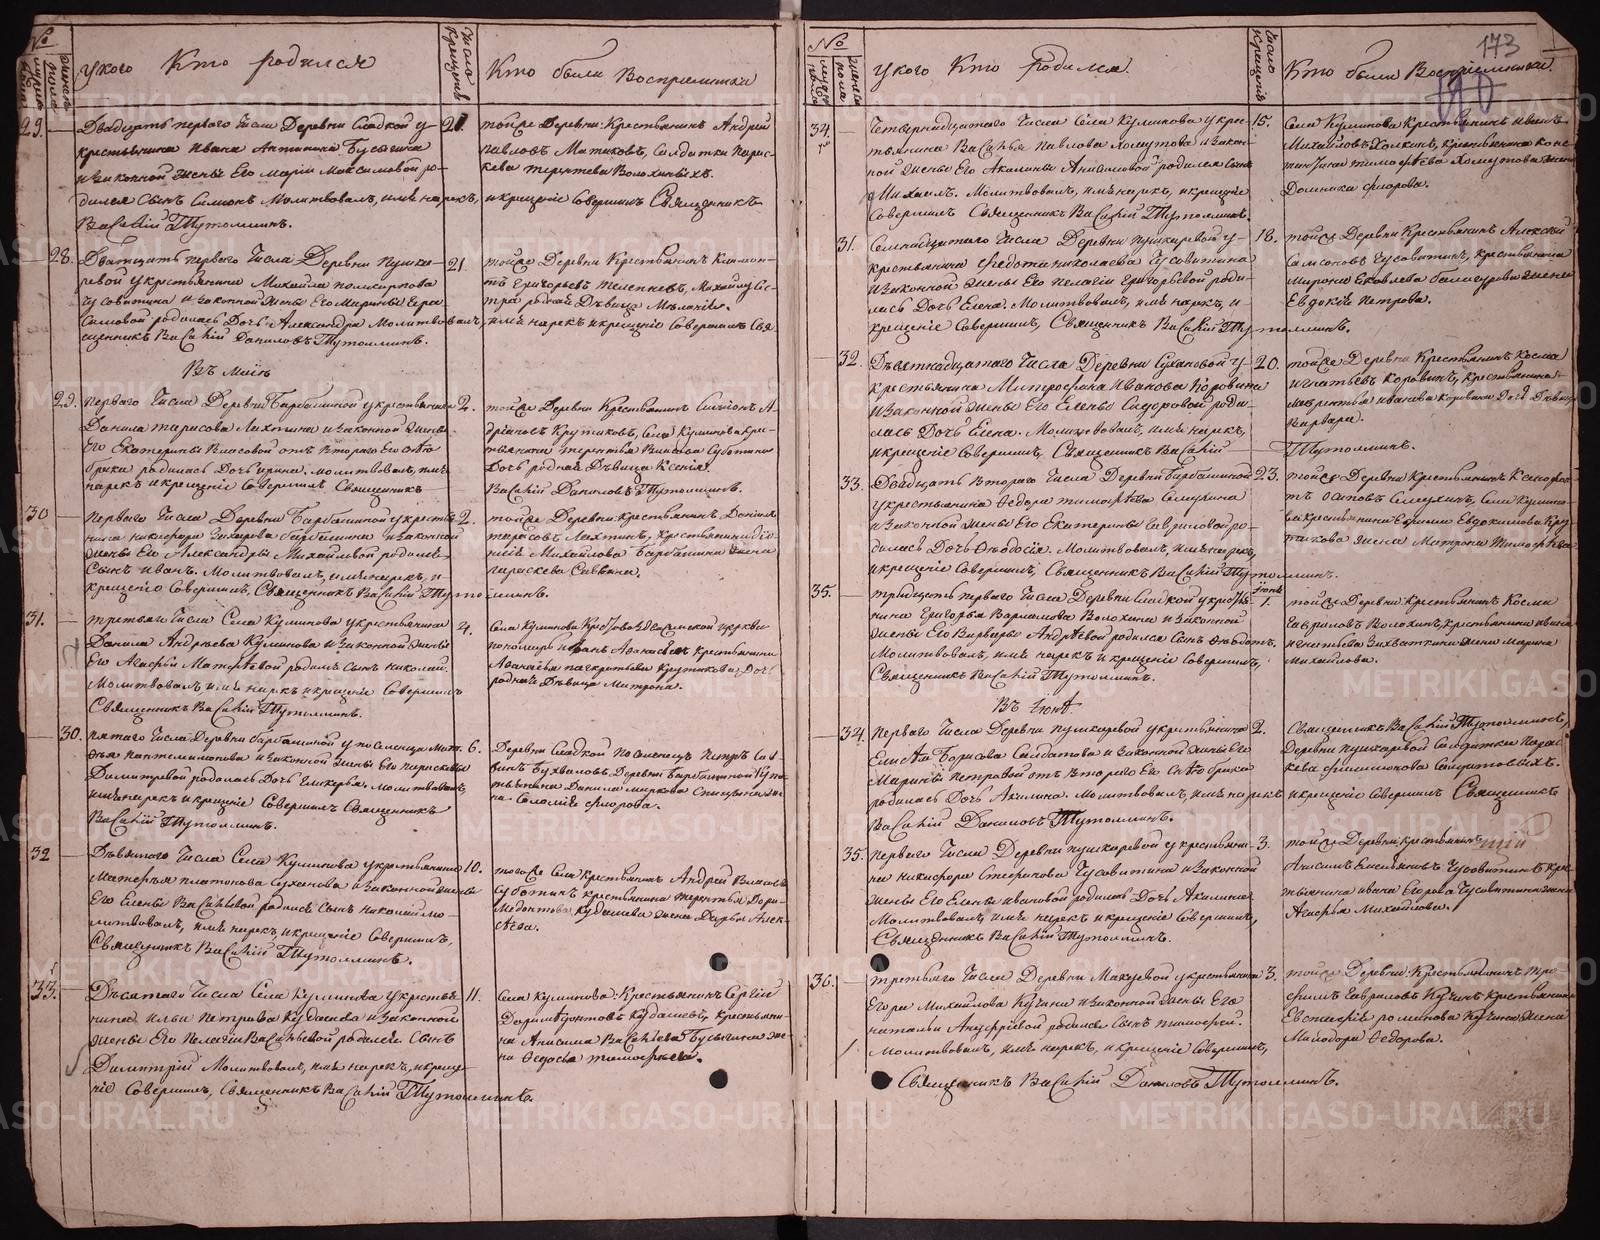 №
мужеска пола
женска пола
У кого Кто родился
Число Крещенія
Кто были Восприемники
29. Двадцать перваго Числа Деревни Сладкой у
крестьянина Ивана Антипина Бусыгина
и Законной жены Его Маріи Максимовой ро-
дился Сынъ Симонъ Молитвовалъ, имя нарекъ,
Василій Тутолминъ.
21. тойже Деревни Крестьянинъ Андрей
Павловъ Солдатки Парас-
кева Терентьева Волохиныхъ.
и крещеніе Совершилъ Священникъ
28. Дватцать перваго Числа Деревни Пушка-
ревой у крестьянина Михайла Поликарпова
Чусовитина и Законной жены Его Марины Гера-
симовой родилась Дочь Александра Молитвовалъ,
щенникъ Василій Даниловъ Тутолминъ.
21. тойже Деревни Крестьянинъ Климен-
тъ Григорьевъ Михайлу Сес-
тра родная Дѣвица Меланія.
имя нарекъ и крещеніе Совершилъ Свя
Въ маіѣ
29. перваго Числа Деревни Барабашиной у крестьянина
Данила Тарасова Лахтина и Законной жены
Его Екатерины Власовой отъ втораго Его
брака родилась Дочь Ирина. молитвовалъ, имя
нарекъ и крещеніе Совершилъ Священникъ
2. тойже Деревни Крестьянинъ Симіонъ А-
дріановъ Крутиковъ, Села Куликова Кре-
стьянина Терентья Власова Суботина
Дочь родная Дѣвица Ксенія.
Василій Даниловъ Тутолминъ.
30 перваго Числа Деревни Барабашиной у крестья-
нина Никифора Захарова Барабашина и Законной
жены Его Александры Михайловой родился
Сынъ Иванъ. Молитвовалъ, имя нарекъ, и
крещеніе Совершилъ, Священникъ Василій Тутолминъ.
2. тойже Деревни Крестьянинъ Данила
Тарасовъ Лахтинъ, Крестьянина Діо-
нисія Михайлова Барабашина жена
Параскева Саввина.
31. третьяго Числа Села Куликова у крестьянина
Данила Андреева Куликова и Законной жены
Его Агафьи Матфѣевой родился Сынъ Николай.
Молитвовалъ имя нарекъ и крещеніе Совершилъ
Священникъ Василій Тутолминъ.
4. Села Куликова Крестовоздвиженской церкви
пономарь Иванъ Афанасіевъ Крестьянина
Афанасья Панкратьева Крутикова Дочь
родная Дѣвица Матрона.
30. пятаго Числа Деревни Барабашиной у поселенца Мат-
фѣя Пантелимонова и Законной жены Его Параскевы
Димитревой родилась Дочь Гликерья. Молитвовалъ,
имя нарекъ и крещеніе Совершилъ Священникъ
Василій Тутолминъ.
6. Деревни Сладкой поселенецъ Петръ Сав-
винъ Бухваловъ, Деревни Барабашиной Крес-
тьянина Данила Маркова Спицына же-
на Соломія Фролова.
32 Девятаго Числа Села Куликова у крестьянина
Матфѣя Платонова Суханова и Законной жены
Его Елены Васильевой родился Сынъ Николай мо-
литвовалъ, имя нарекъ, и крещеніе Совершилъ,
Священникъ Василій Тутолминъ.
10. тогоже Села крестьянинъ Андрей Власовъ
Суботинъ крестьянина Терентья Дори-
медонтова Кудашева жена Дарья Алек-
сѣева.
33. Десятаго Числа Села Куликова у крестья-
нина Ильи Петрова Кудашева и Законной
жены Его Пелагіи Васильевой родился Сынъ
Димитрій Молитвовалъ, имя нарекъ, и креще-
ніе Совершилъ, Священникъ Василій Тутолминъ.
11. Села Куликова: Крестьянинъ Сергій
Доримедонтовъ Кудашевъ, Крестьяни-
на Анисима Васильева Бусыгина же-
на Федосья Тимофеева.
173
№
мужеска пола
женска пола
У кого Кто родился.
Число Крещенія
Кто были Воспріемники.
34. Четвернадцатаго Числа Села Куликова у крес-
тьянина Василья Павлова Хомутова и Закон-
ной жены Его Акилины Анисимовой родился Сынъ
Михаилъ. Молитвовалъ, имя нарекъ, и крещеніе
Совершилъ Священникъ Василій Тутолминъ.
15. Села Куликова Крестьянинъ Иванъ
Михайловъ Холкинъ, Крестьянина Конс-
тантина Тимофѣева Хомутова жена
Домника Фролова.
31. Семнадцатаго Числа Деревни Пушкаревой у
крестьянина Федота Николаева Чусовитина
и Законной жены Его Пелагіи Григорьевой роди-
лась Дочь Елена. Молитвовалъ, имя нарекъ, и
крещеніе Совершилъ, Священникъ Василій Тутолминъ.
18. тойже Деревни Крестьянинъ Алексей
Самсоновъ Чусовитинъ, крестьянина
Мирона Яковлева Балакурова жена
Евдокія Петрова.
32. Девятнадцатаго Числа Деревни Сухановой у
крестьянина Митрофана Иванова Коровина
и Законной жены Его Елены Сидоровой роди-
лась Дочь Елена. Молитвовалъ, имя нарекъ,
и крещеніе Совершилъ, Священникъ Василій
20. тойже Деревни Крестьянинъ Косма
Игнатьевъ Коровинъ, Крестьянина
Лаврентья Иванова Коровина Дочь Дѣвица
Варвара.
Тутолминъ.
33. Двадцать Втораго Числа Деревни Барабашиной
у крестьянина Федора Тимофѣева Семухина
и Законной жены Его Екатерины Гавриловой ро-
дилась Дочь Феодосія. Молитвовалъ, имя нарекъ,
и крещеніе Совершилъ, Священникъ Василій Тутолминъ.
23. тойже Деревни Крестьянинъ Ксенофон-
тъ Осиповъ Семухинъ, Села Кулико-
ва Крестьянина Евдокимова Кру-
тикова жена Матрона Тимофѣева
35. тридцать перваго Числа Деревни Сладкой у крестья-
нина Григорья Варламова Волохина и Законной
жены Его Варвары Андреевой родился Сынъ Феодотъ.
Молитвовалъ, имя нарекъ и крещеніе Совершилъ,
Священникъ Василій Тутолминъ.
Іюня
1. тойже Деревни Крестьянинъ Косма
Гавриловъ Волохинъ, Крестьянина Ивана
Игнатьева жена Марина
Михайлова.
Въ Іюнѣ
34. Перваго Числа Деревни Пушкаревой у крестьянина
Елисѣя Борисова Солдатова и Законной жены Его
Марины Петровой отъ втораго Его брака
родилась Дочь Акилина. Молитвовалъ, имя нарекъ
Василій Даниловъ Тутолминъ.
2. Священникъ Василій Тутолминъ,
Деревни Пушкаревой Солдатка Парас-
кева Филимонова Солдатовыхъ.
и крещеніе Совершилъ Священникъ
35. перваго Числа Деревни Пушкаревой у крестьяни-
на Никифора Стефанова Чусовитина и Законной
жены Его Елены Ивановой родилась Дочь Акилина.
Молитвовалъ, имя нарекъ и крещеніе Совершилъ,
Священникъ Василій Тутолминъ.
3. тойже Деревни Крестьянинъ
Анисимъ Емельяновъ Чусовитинъ Крес-
тьянина Ивана Егорова Чусовитина жена
Агафья Михайлова.
36. третьяго Числа Деревни Макуевой у крестьянина
Егора Михайлова Кучина и Законной жены Его
Натальи Андреевой родился Сынъ Тимофей.
Молитвовалъ, имя нарекъ, и крещеніе Совершилъ,
Священникъ Василій Даниловъ Тутолминъ.
3. тойже Деревни Крестьянинъ Тро-
фимъ Гавриловъ Кучинъ Крестьянина
Евстафія Романова Кучина жена
Миладора Федорова.